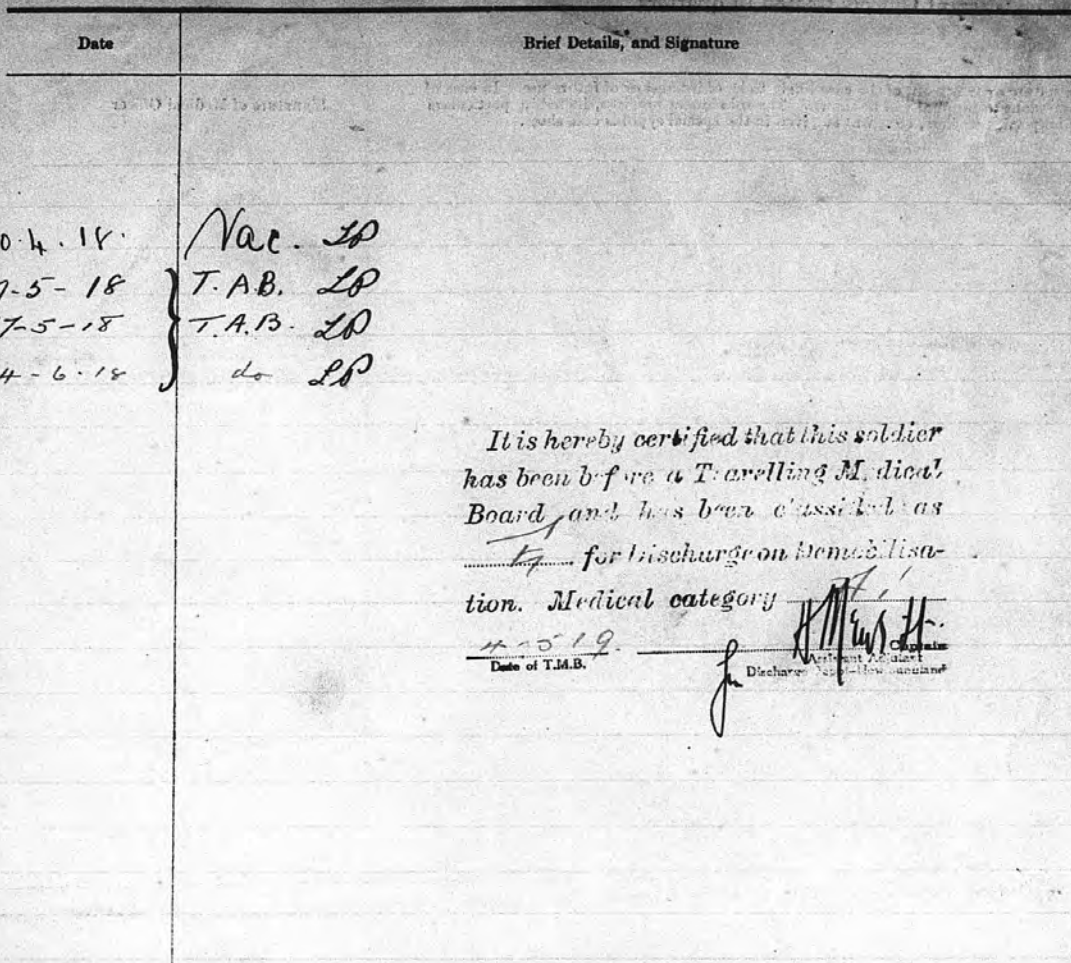 Date Brief Details, and Signature
0.4.18. Vac. LP
7-5-18 T.A.B. LP
7-5-18 T.A.B. LP
4-6-18 do LP
It is hereby certified that this soldier
has been before a Travelling Medical
Board and has been classified as
for Discharge on Demobilisa-
tion. Medical category
4-5-19.
Date of T.M.B.
Captain
Assistant Adjutant
Discharge Depot-Newfoundland